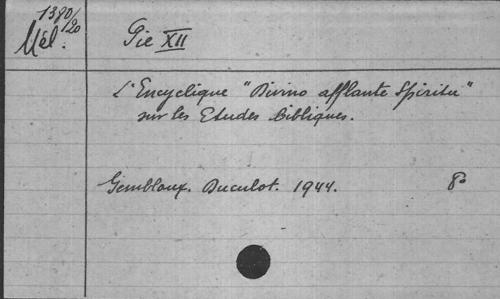 1380/120
Mél.
Pie XII
L'Encyclique "Divino afflante Spiritu"
sur les Etudes Bibliques.
Gembloux. Duculot. 1944. 8°